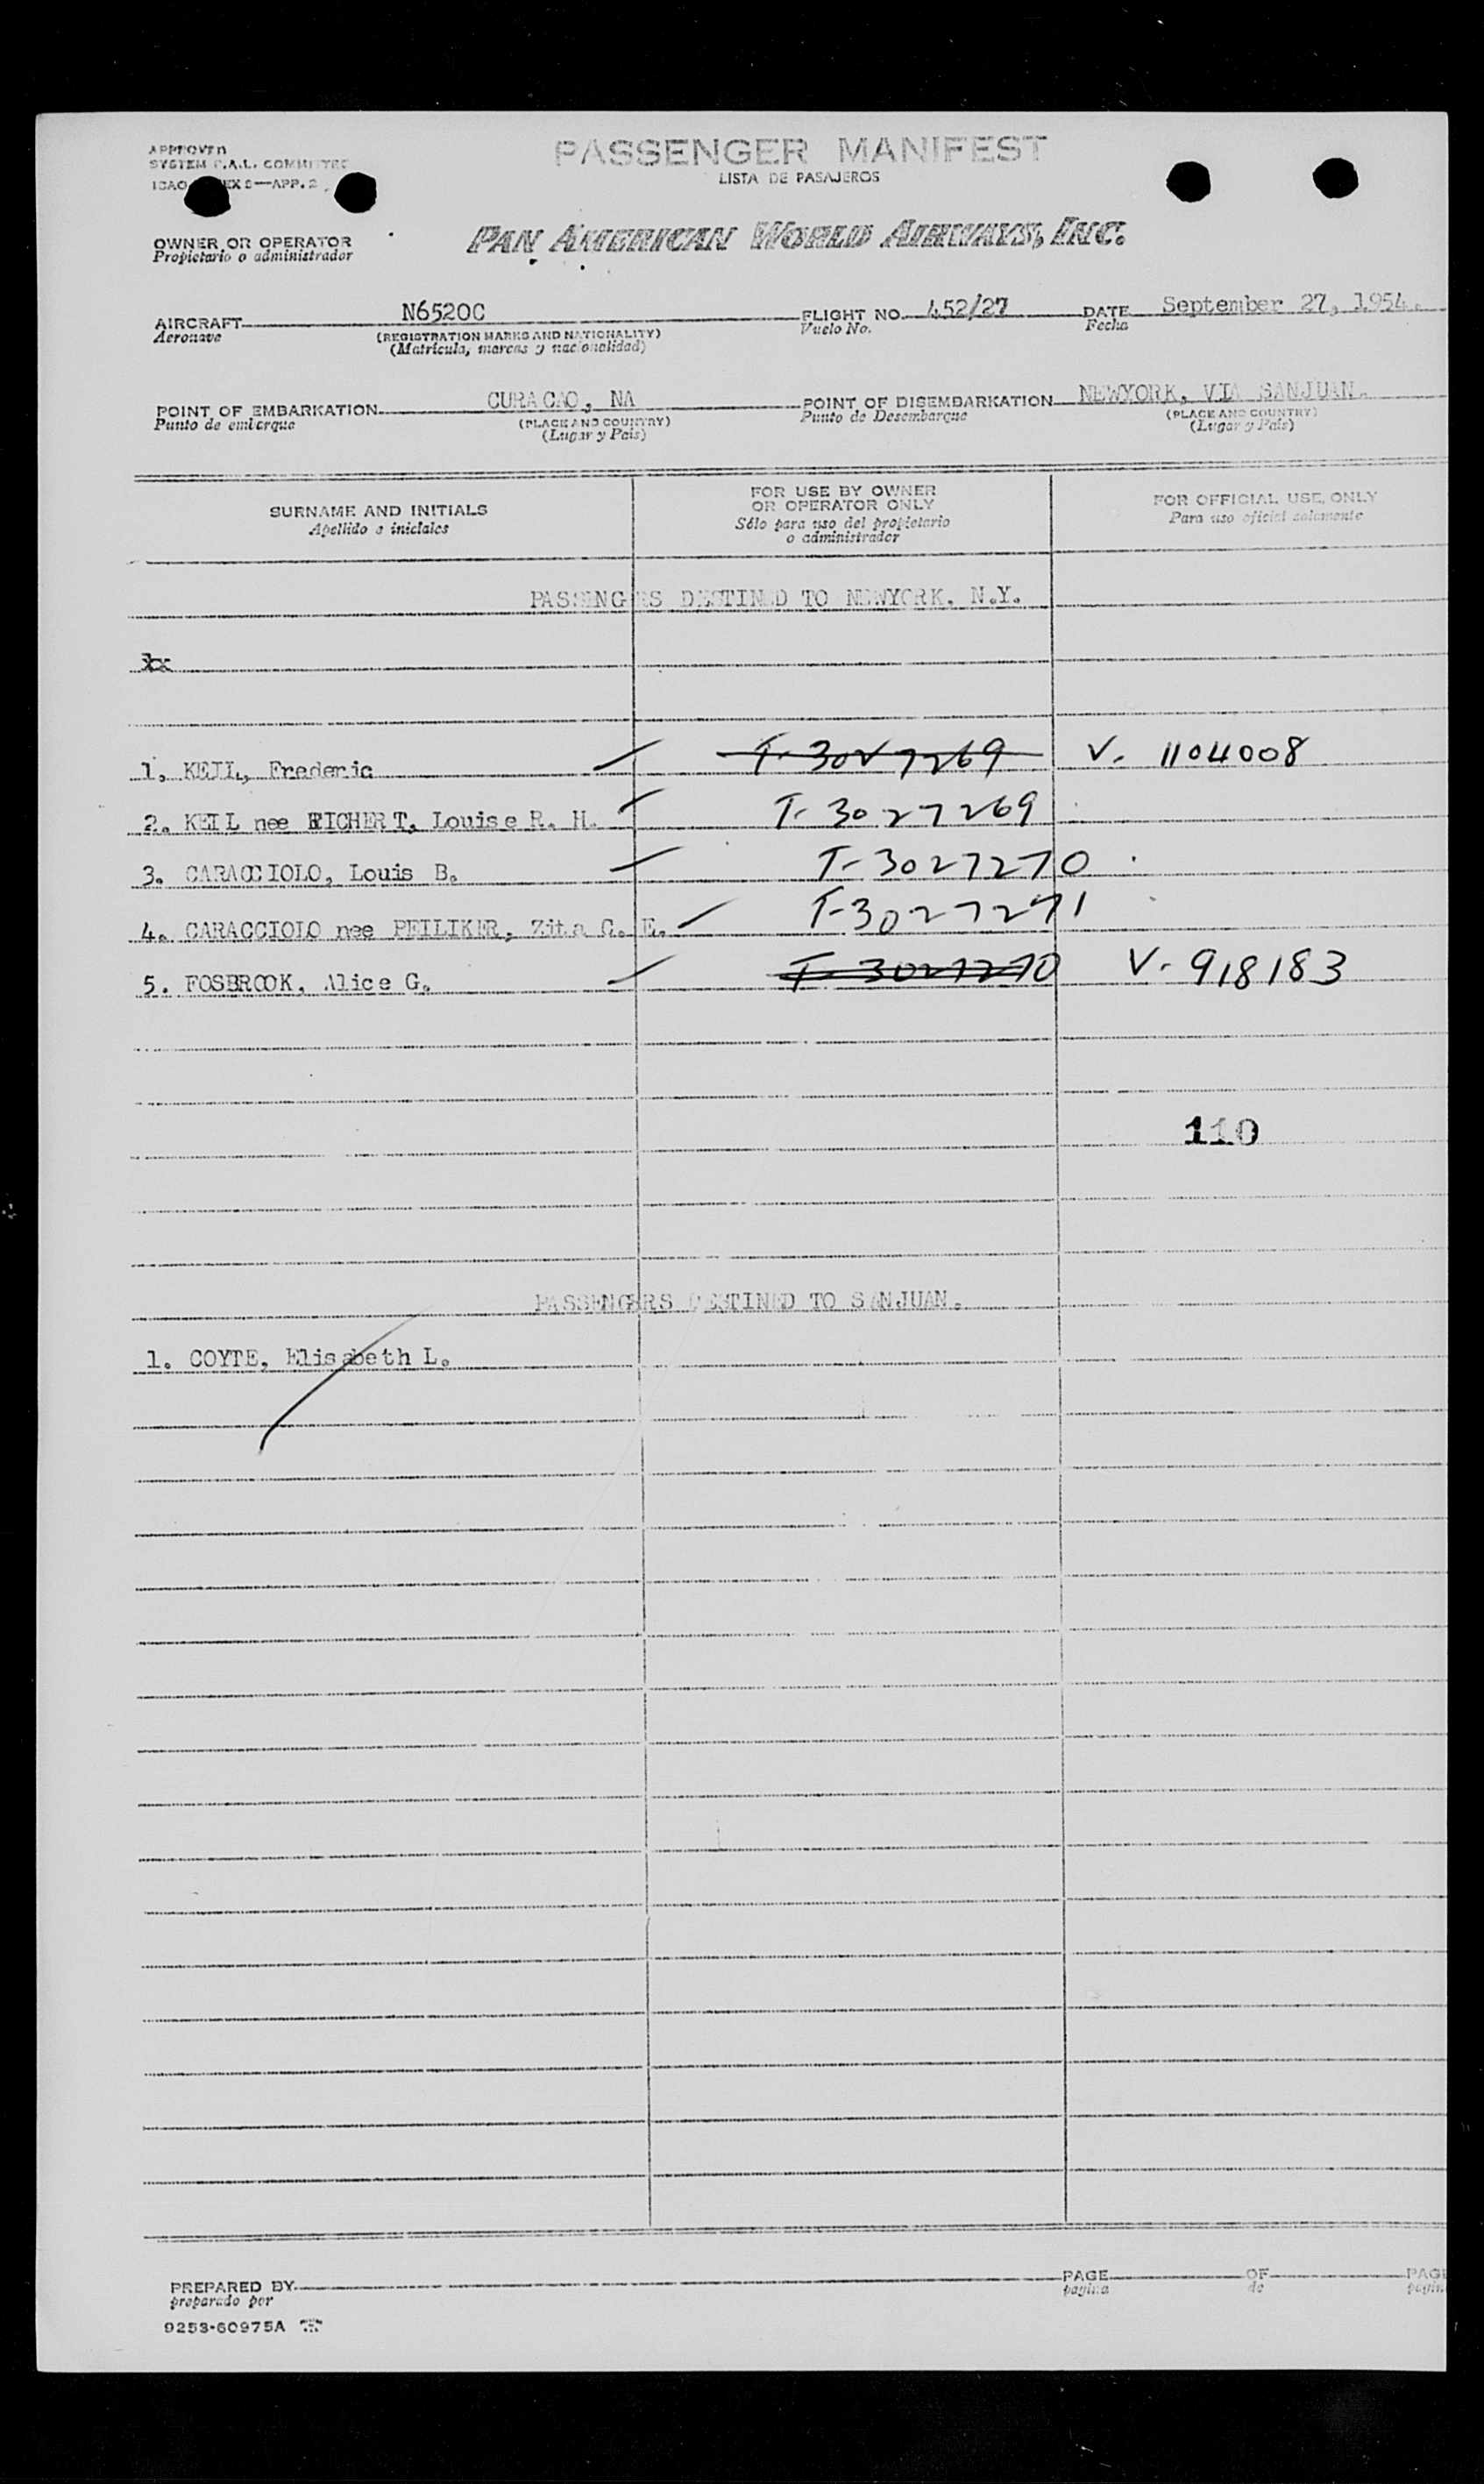 APPROVED
PASSENGER MANIFEST
SYSTEM F.A.L. COMMITTEE
LISTA DE PASAJEROS
ICAO EX 9—APP. 2
OWNER OR OPERATOR
Propietario o administrador
PAN AMERICAN WORLD AIRWAYS, INC.
AIRCRAFT N6520C FLIGHT NO. 452/27 DATE September 27, 1954.
Aeronave (REGISTRATION MARKS AND NATIONALITY) Vuelo No. Fecha
(Matrícula, marcas y nacionalidad)
POINT OF EMBARKATION CURACAO, NA POINT OF DISEMBARKATION NEWYORK, VIA SANJUAN.
Punto de embarque (PLACE AND COUNTRY) Punto de Desembarque (PLACE AND COUNTRY)
(Lugar y País) (Lugar y País)
SURNAME AND INITIALS
Apellido e iniciales
FOR USE BY OWNER
OR OPERATOR ONLY
Sólo para uso del propietario
o administrador
FOR OFFICIAL USE ONLY
Para uso oficial solamente
PASSENGES DESTINED TO NEWYORK. N.Y.
xx
1. KEIL, Frederic T-3027269 V. 1104008
2. KEIL nee EICHERT, Louise R. H. T-3027269
3. CARACCIOLO, Louis B. T-3027270
4. CARACCIOLO nee PEILIKER, Zita C. E. T-3027271
5. FOSBROOK, Alice G. T-3027270 V-918183
110
PASSENGERS DESTINED TO SANJUAN.
1. COYTE, Elisabeth L.
PREPARED BY PAGE OF PAG
preparado por pagina de pagin
9253-60975A